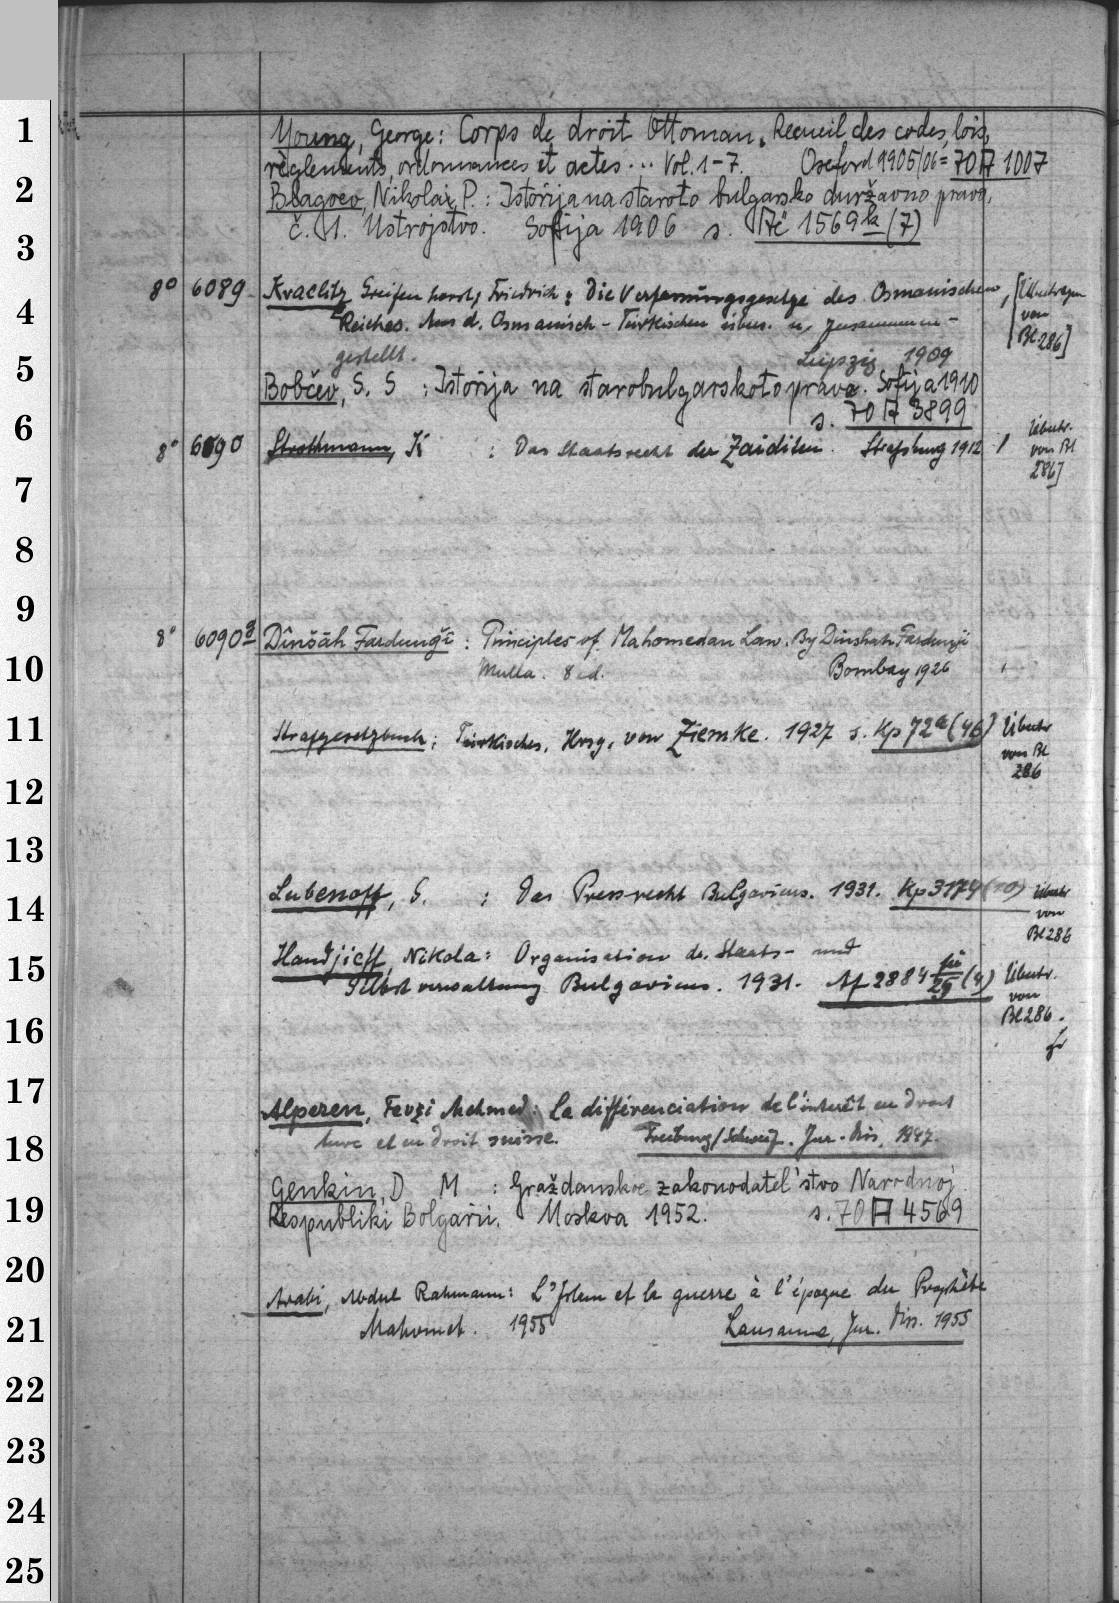 1
Young, George: Corps de droit Ottoman. Recueil des codes, lois,
règlements, ordonnances et actes... Vol. 1-7. Oxford 1905/06 = 70 A 1007
2
Blagoev, Nikolai, P.: Istorija na staroto bulgarsko duržavno pravo,
č. 1. Ustrojstvo. Sofija 1906 s. Ač 1569 k (7)
3
8° 6089 Kraelitz Greifenhorst, Friedrich: Die Verfassungsgesetze des Osmanischen [Übertragen
4
Reiches. Aus d. Osmanisch-Türkischen übers. u. zusammen- von
gestellt. Leipzig 1909 Bl. 286]
5
Bobčev, S. S : Istorija na starobulgarskoto pravo. Sofija 1910
s. 70 A 3899
6
8° 6090 Strothmann, K : Das Staatsrecht der Zaiditen. Straßburg 1912 / Übertr.
von Bl
286]
7
8
9
8° 6090 a Dînšāh Fardunǧī : Principles of Mahomedan Law. By Dinshah Fardunji
10
Mulla. 8 ed. Bombay 1926
11
Strafgesetzbuch; Türkisches, Hrsg. von Ziemke. 1927 s. Kp 72 a (46) Übertr
von Bl
286
12
13
14
Lubenoff, S. : Das Pressrecht Bulgariens. 1931. Kp 3174 (10) Übertr
von
Bl 286
Handjieff, Nikola: Organisation der Staats- und
15
Selbstverwaltung Bulgariens. 1931. Af 2884 (4) Übertr.
von
Bl 286.
16
17
Alperen, Fevzi Mehmed: La différenciation de l'intérêt en droit
18
turc et en droit suisse. Freiburg/Schweiz. Jur. Diss. 1947.
Genkin, D M : Graždanskoe zakonodatel'stvo Narodnoj
19
Respubliki Bolgarii. Moskva 1952. s. 70 A 4569
20
Arabi, Abdul Rahmann: L'Islam et la guerre à l'époque du Prophète
21
Mahomet. 1955 Lausanne, Jur. Diss. 1955
22
23
24
25